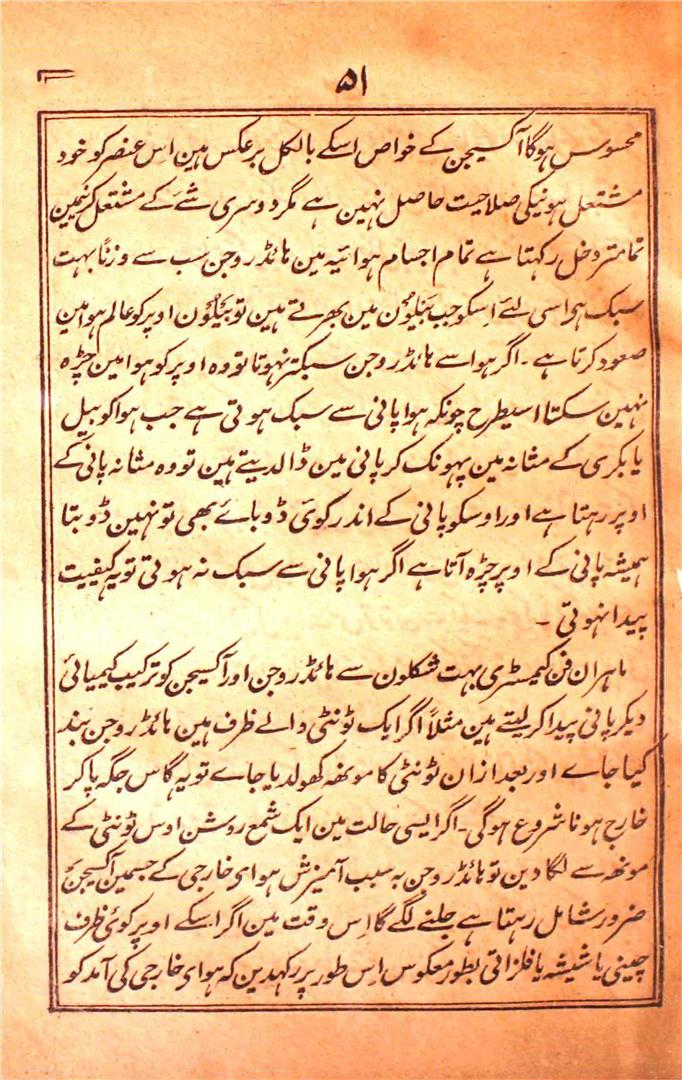 ۵۱
محسوس ہوگا آکسیجن کے خواص اسکے بالکل برعکس ہین اس عنصر کو خود
مشتعل ہونیکی صلاحیت حاصل نہین ہے مگر دوسری شے کے مشتعل کرنیمین
تمامتر دخل رکہتا ہے تمام اجسام ہوائیہ مین ہائڈروجن سب سے وزناً بہت
سبک ہوا سی لئے اِسکو جب بَیلوُن مین بھرتے ہین تو بَیلوُن اوپر کو عالم ہوا مین
صعود کرتا ہے ۔ اگر ہوا سے ہائڈروجن سبکتر نہوتا تو وہ اوپر کو ہوا مین چڑہ
نہین سکتا اسیطرح چونکہ ہوا پانی سے سبک ہوتی ہے جب ہوا کو بیل
یا بکری کے مثانہ مین پہونک کر پانی مین ڈالدیتے ہین تو وہ مثانہ پانی کے
اوپر رہتا ہے اور اوسکو پانی کے اندر کوئی ڈوباے بھی تو نہین ڈوبتا
ہمیشہ پانی کے اوپر چڑہ آتا ہے اگر ہوا پانی سے سبک نہ ہوتی تو یہ کیفیت
پیدا نہوتی ۔
ماہران فن کیمسٹری بہت شکلون سے ہائڈروجن اور آکسیجن کو ترکیب کیمیائی
دیکر پانی پیدا کر لیتے ہین مثلاً اگر ایک ٹونٹی دالے ظرف مین ہائڈروجن بند
کیا جاے اور بعد ازان ٹونٹی کا مونھہ کھولدیا جاے تو یہ گاس جگہ پاکر
خارج ہونا شروع ہوگی ۔ اگر ایسی حالت مین ایک شمع روشن اوس ٹونٹی کے
مونھہ سے لگا دین تو ہائڈروجن بہ سبب آمیزش ہوای خارجی کے جسمین آکسیجن
ضرور شامل رہتا ہے جلنے لگے گا اِس وقت مین اگر اسکے اوپر کوئی ظرف
چینی یا شیشہ یا فلزاتی بطور معکوس اس طور پر رکہدین کہ ہوای خارجی کی آمد کو